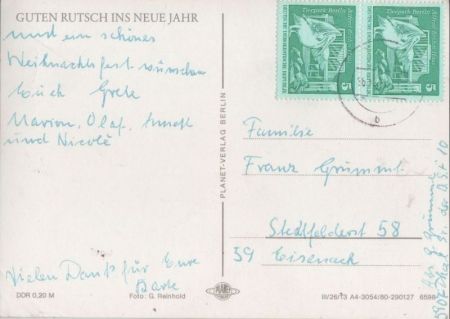 GUTEN RUTSCH INS NEUE JAHR
und ein schönes
Weihnachtsfest wünschen
Euch Grete
Marion, Olaf,
und Nicole
Vielen Dank für Eure
Karte
DDR 0,20 M
Foto: G. Reinhold
PLANET-VERLAG BERLIN
PLANET
Tierpark Berlin
DEUTSCHE DEMOKRATISCHE REPUBLIK
5
Tierpark Berlin
DEUTSCHE DEMOKRATISCHE REPUBLIK
5
b
Familie
Franz
59 Eisenach
III/26/13 A4-3054/80-290127 6598